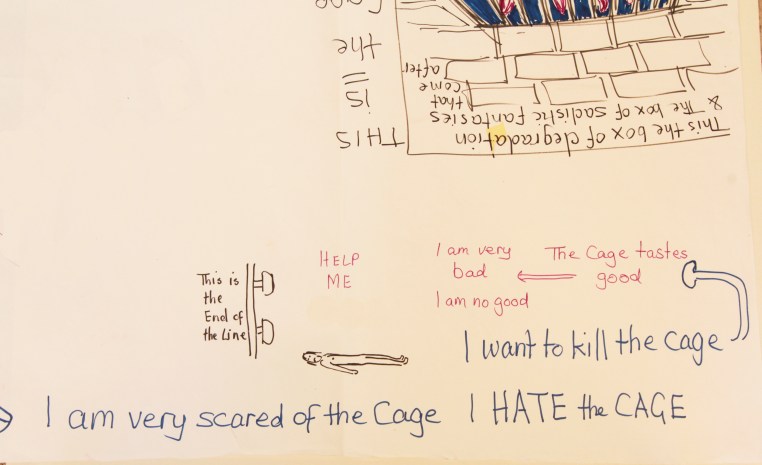 Cage
the
is
THIS
after
come
that
& The box of sadistic fantasies
This the box of degradation
This is
the
End of
the Line
HELP
ME
I am very
bad
I am no good
The Cage tastes
good
I want to kill the cage
I am very scared of the Cage
I HATE the CAGE